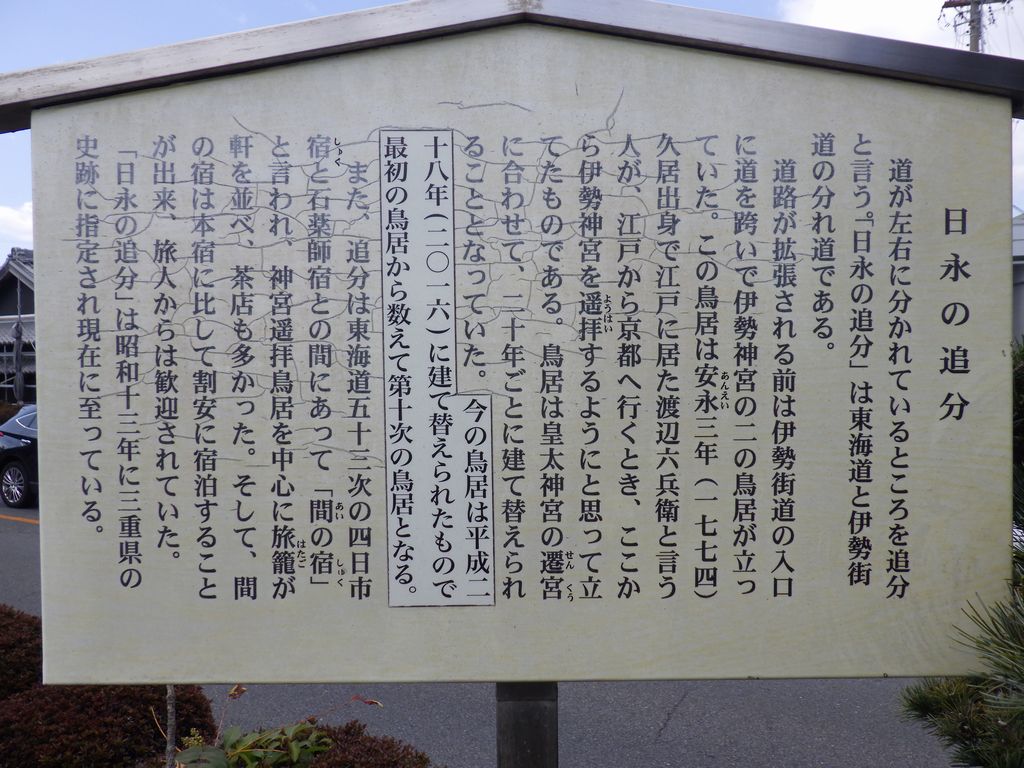 日永の追分
道が左右に分かれているところを追分
と言う。「日永の追分」は東海道と伊勢街
道の分れ道である。
道路が拡張される前は伊勢街道の入口
に道を跨いで伊勢神宮の二の鳥居が立っ
ていた。この鳥居は安永三年(一七七四)
久居出身で江戸に居た渡辺六兵衛と言う
人が、江戸から京都へ行くとき、ここか
ら伊勢神宮を遥拝するようにと思って立
てたものである。鳥居は皇太神宮の遷宮
に合わせて、二十年ごとに建て替えられ
ることとなっていた。今の鳥居は平成二
十八年(二〇一六)に建て替えられたもので
最初の鳥居から数えて第十次の鳥居となる。
また、追分は東海道五十三次の四日市
宿と石薬師宿との間にあって「間の宿」
と言われ、神宮遥拝鳥居を中心に旅籠が
軒を並べ、茶店も多かった。そして、間
の宿は本宿に比して割安に宿泊すること
が出来、旅人からは歓迎されていた。
「日永の追分」は昭和十三年に三重県の
史跡に指定され現在に至っている。